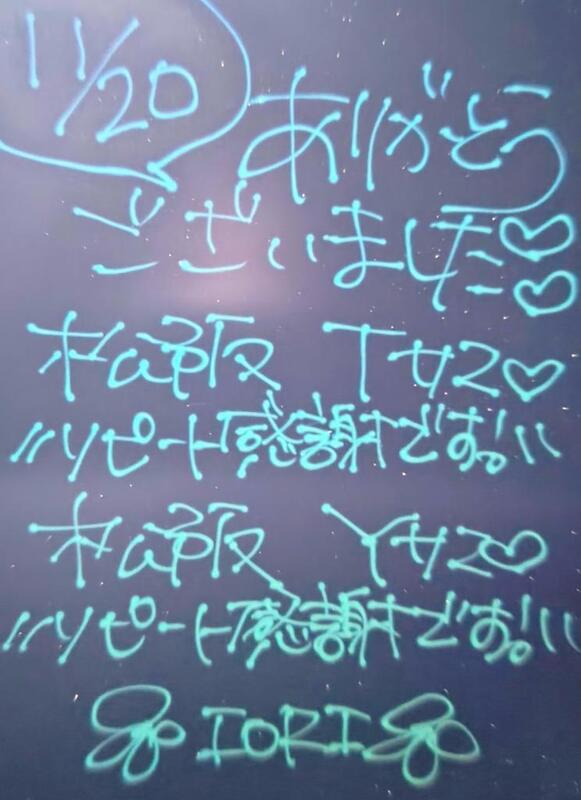 11/20
ありがとう
ございました♡♡
松阪 Tサマ♡
リピート感謝です!!
松阪 Yサマ♡
リピート感謝です!!
IORI